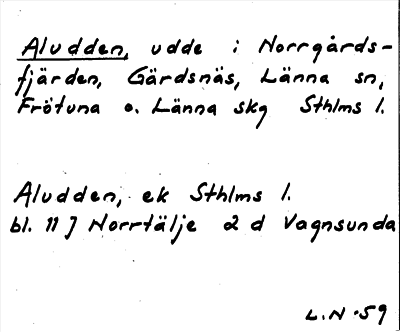 Aludden, udde i Norrgårds-
fjärden, Gärdsnäs, Länna sn,
Frötuna o. Länna skg Sthlms l.
Aludden, ek Sthlms l.
bl. 11 J Norrtälje 2 d Vagnsunda
L.N -59